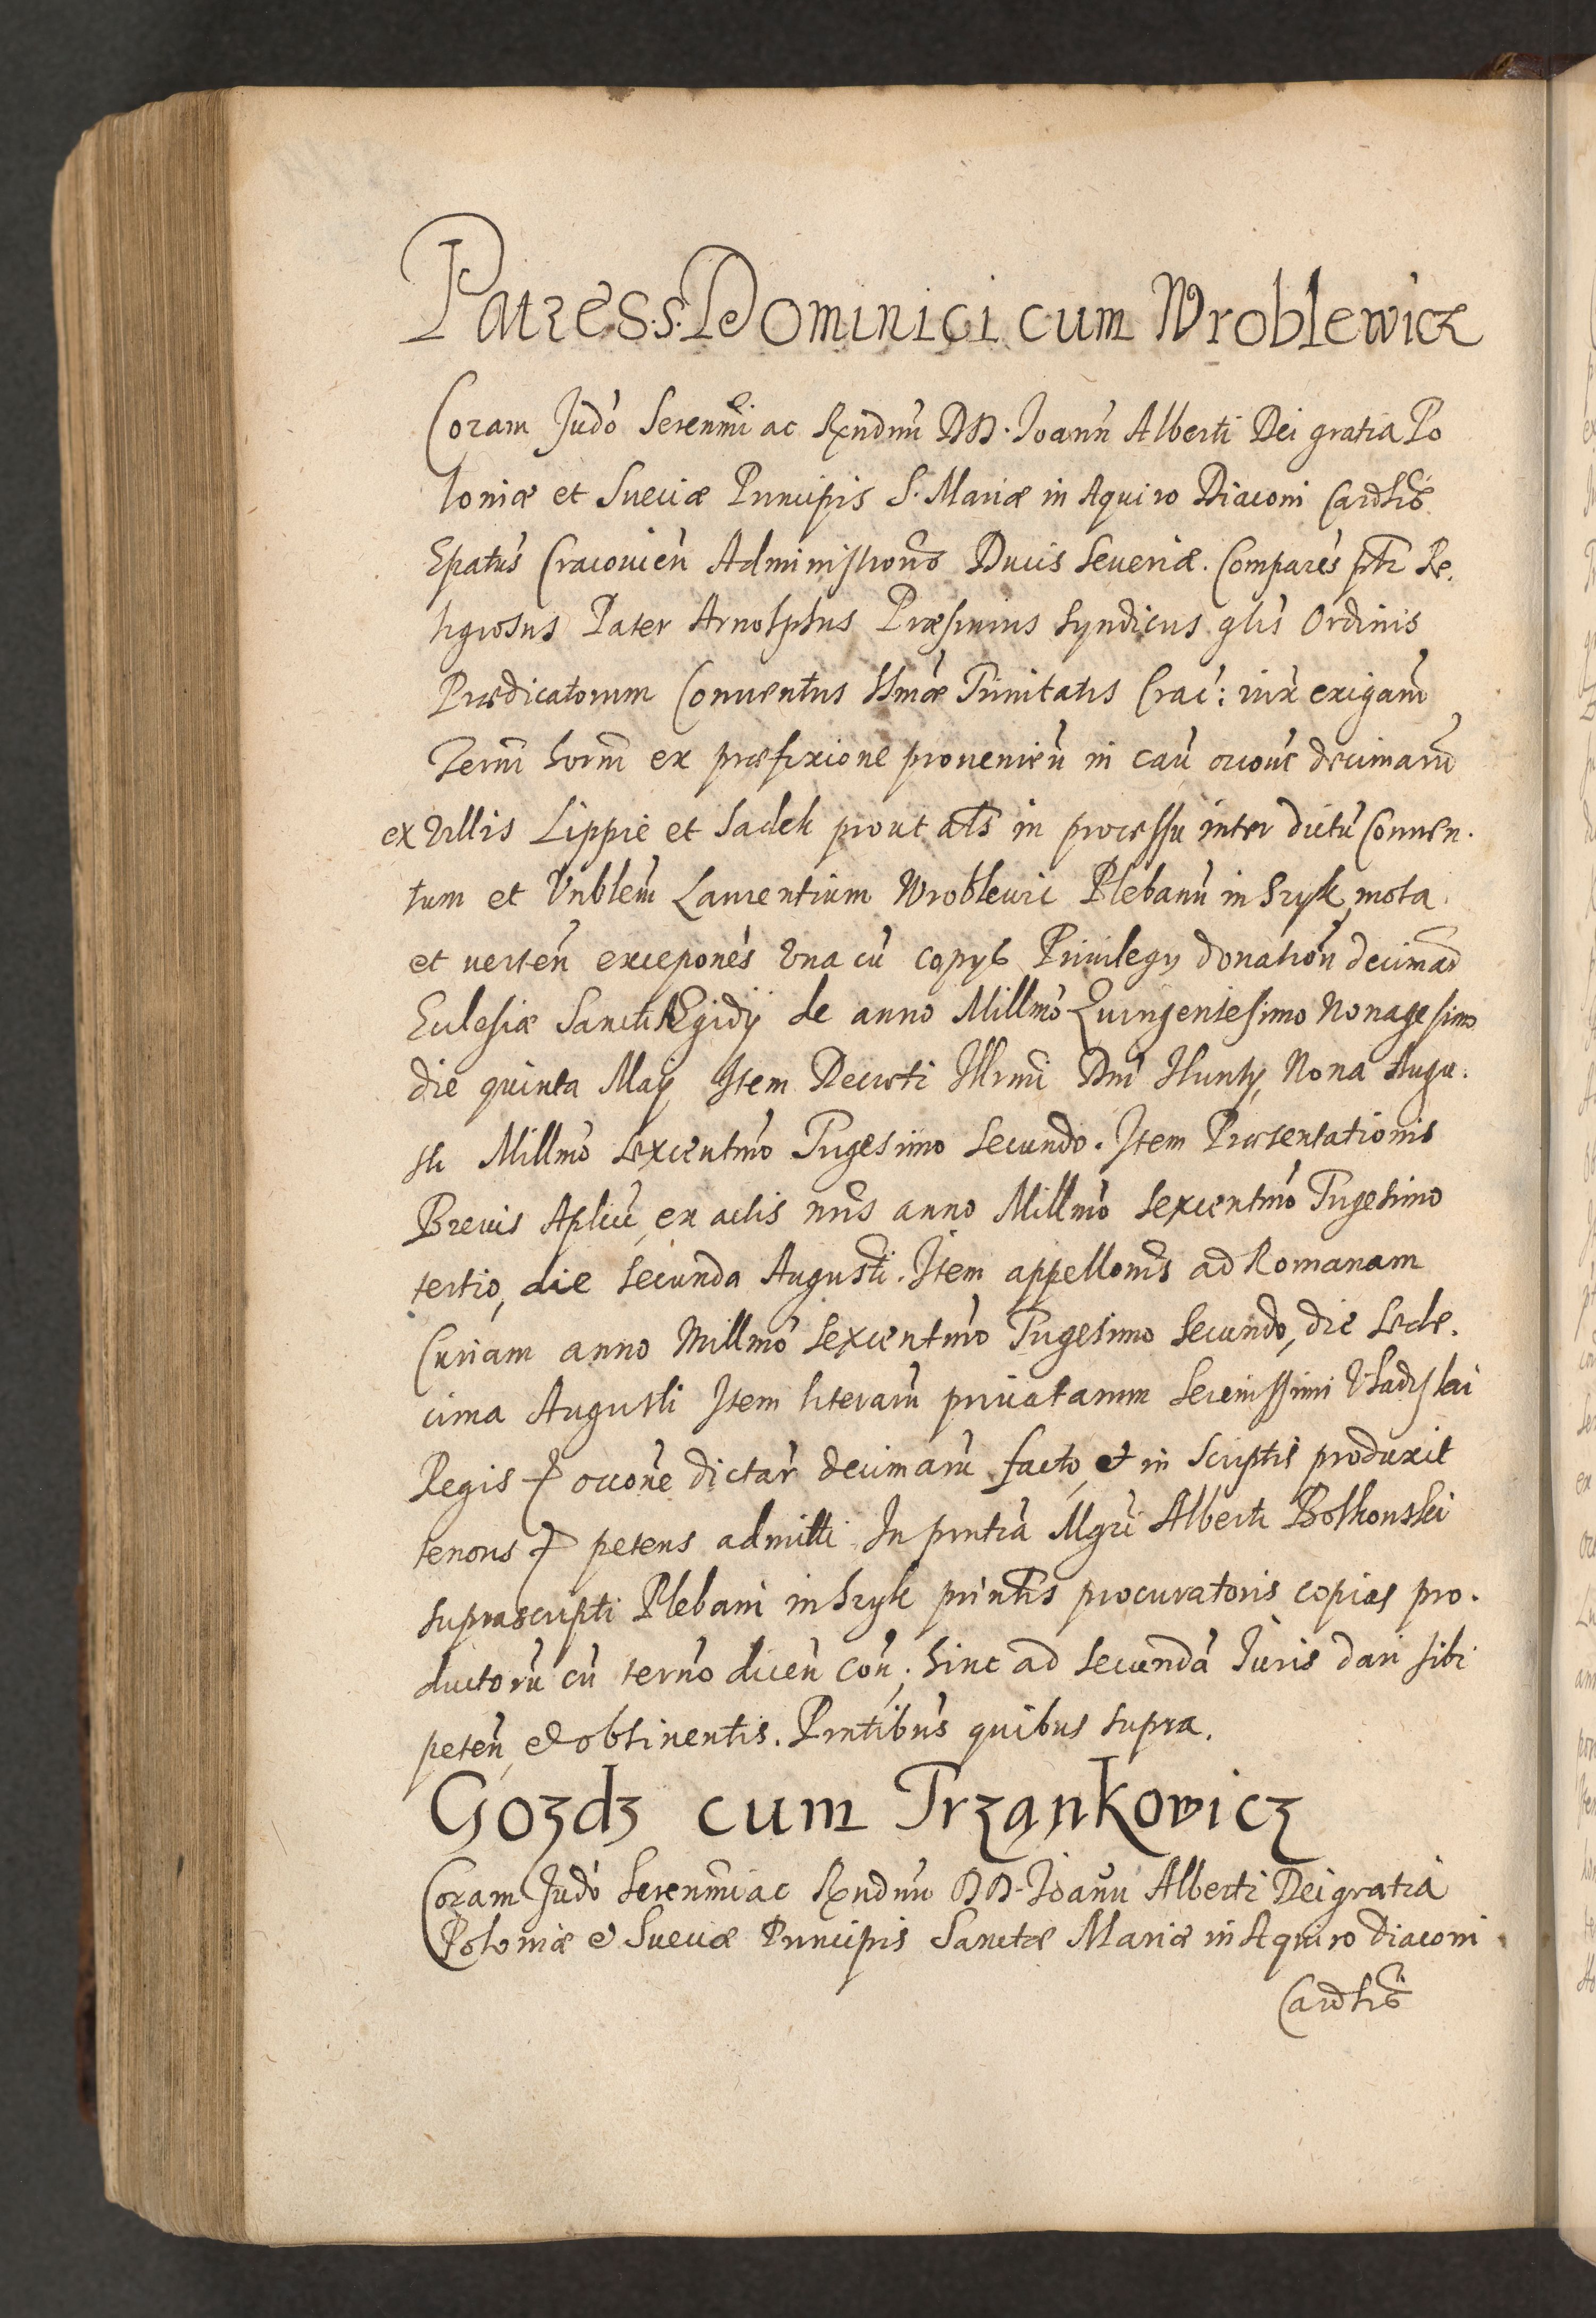 Patres S. Dominici cum Wroblewicz
Coram Judō Serenmi ac Rxndmi DD. Joann̄ Alberti Dei gratia Po
loniæ et Sueciæ Principis S. Mariæ in Aquiro Diaconi Cardlis
Epatus Cracovien̄ Administronis Ducis Severiæ. Comparēs ptr Re.
ligiosus Pater Arnolphus Præsinius Syndicus glis Ordinis
Prædicatorum Conventus SSmæ Trinitatis Crac: iux exigam̄
Term̄ horm̄ ex præfixione provenien̄ in cau ōccone decimarū
ex Villis Lippie et Sadek prout ałs in processu inter dictū Conven.
tum et Vnblem̄ Laurentium Wroblewic Plebanū in Sryk, mota
et verten̄ excepones Vna cū copys Privilegy donation̄ decimar̄
Eclesiæ Sancti Ægidÿ de anno Millmo Quingentesimo Nonagesimo
die quinta Maij Item Decreti Illrmi Dni Nunty, Nona Augu.
sti Millmo Sexcentmo Trigesimo Secundo. Item Præsentationis
Brevis Aplici, ex actis nris anno Millmo Sexcentmo Trigesimo
tertio, die Secunda Augusti. Item appellonis ad Romanam
Curiam anno Millmo Sexcentmo Trigesimo Secundo, die Sede.
cima Augusti Item literarū privatarum Serenissimi Vladislai
Regis ꝑ occone dictar̄ decimarū facto, et in Scriptis produxit
tenoris ꝑ petens admitti In pntia Mgri Alberti Bolkonski
suprascripti Plebani in Sryk pnntis procuratoris copias pro.
ductorū cū termo dicen̄ con̄, hinc ad Secundā Iuris dari sibi
peten̄, et obtinentis. Pntibus quibus supra.
Gozdz cum Trząnkowicz
Coram Judō Serenmi ac Rxndmi DD. Joann̄ Alberti Dei gratia
Poloniæ et Sueciæ Principis Sanctæ Mariæ in Aquiro Diaconi
Cardlis